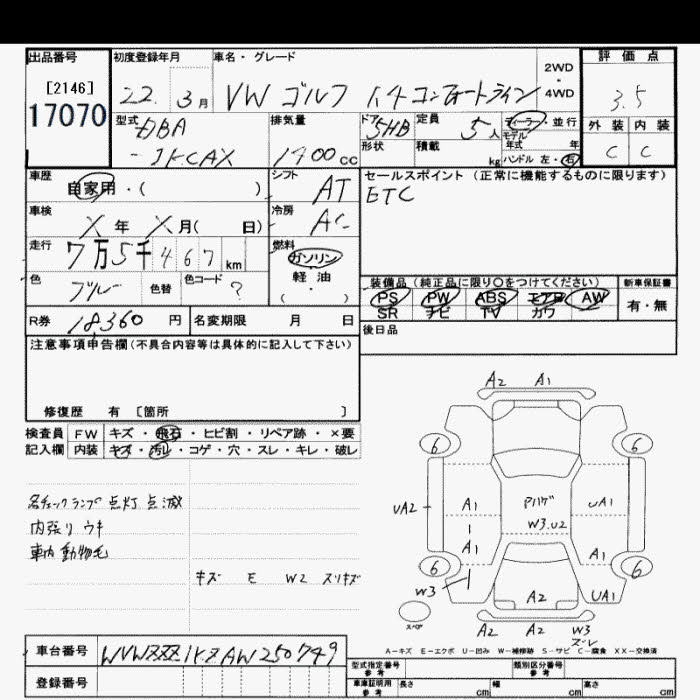 出品番号 初度登録年月 車名・グレード 評価点
[2146] 2WD・4WD
17070 22. 3月 VW ゴルフ 1.4コンフォートライン 3.5
型式 DBA 排気量 ドア 5HB 定員 5人 ディーラー・並行 外装 内装
-1KCAX 1400cc 形状 積載 kg モデル年式 年 C C
ハンドル 左・右
車歴 シフト セールスポイント(正常に機能するものに限ります)
自家用・( ) AT ETC
車検 X年 X月( 日) 冷房 AC
走行 7万5千467km 燃料 ガソリン
軽油
( )
色 ブルー 色替 色コード ? 装備品(純正品に限り○をつけてください) 新車保証書
PS PW ABS エアB AW 有・無
SR ナビ TV カワ
R券 18,360円 名変期限 月 日
後日品
注意事項申告欄(不具合内容等は具体的に記入して下さい)
修復歴 有 [箇所 ]
検査員 FW キズ・飛石・ヒビ割・リペア跡・×要
記入欄 内装 キズ・汚レ・コゲ・穴・スレ・キレ・破レ
各チェックランプ 点灯 点滅
内張り ウキ
車内 動物毛
キズ E W2 スリキズ
A2 A1
6 6
UA2 A1 Pハゲ UA1
W3.U2
A1 A1
6 6
W3 A2 UA1
スペア A2 A2 W3
ズレ
A-キズ E-エクボ U-凹み W-補修跡 S-サビ C-腐食 XX-交換済
車台番号 WVWZZZ1KZAW250749
型式指定番号 参考 類別区分番号 参考
登録番号
車庫証明用 参考 長さ cm 幅 cm 高さ cm